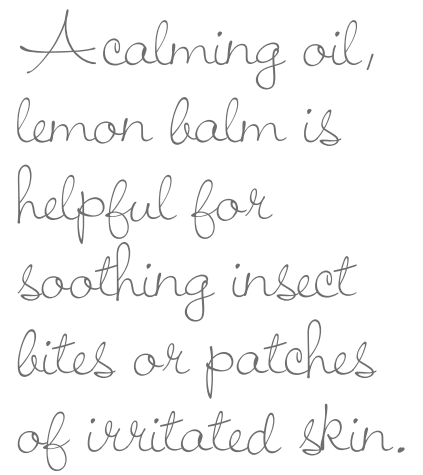 A calming oil,
lemon balm is
helpful for
soothing insect
bites or patches
of irritated skin.